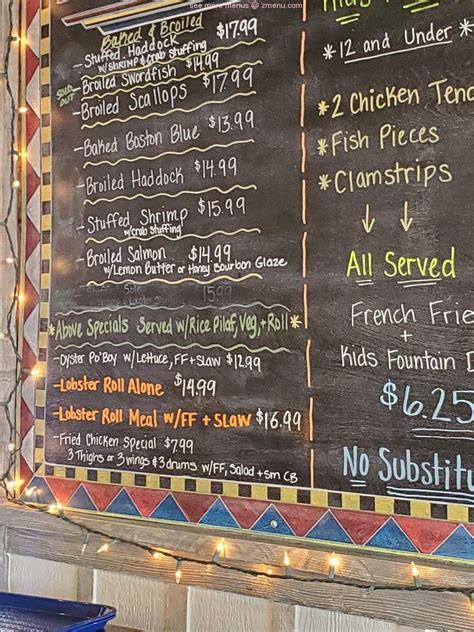 see more menus @ zmenu.com
Baked & Broiled
- Stuffed Haddock $17.99
w/SHRIMP & crab stuffing
SOLD OUT
- Broiled Swordfish $14.99
- Broiled Scallops $17.99
- Baked Boston Blue $13.99
- Broiled Haddock $14.99
- Stuffed Shrimp $15.99
w/crab stuffing
- Broiled Salmon $14.99
w/Lemon Butter or Honey Bourbon Glaze
15.99
*Above Specials Served w/Rice Pilaf, Veg, + Roll*
- Oyster Po'Boy w/ Lettuce, FF + Slaw $12.99
- Lobster Roll Alone $14.99
- Lobster Roll Meal w/FF + SLAW $16.99
- Fried Chicken Special $7.99
3 Thighs or 3 wings & 3 drums w/FF, Salad + sm CB
*12 and Under*
*2 Chicken Tend
*Fish Pieces
*Clamstrips
All Served
French Frie
+
Kids Fountain D
$6.25
No Substitu